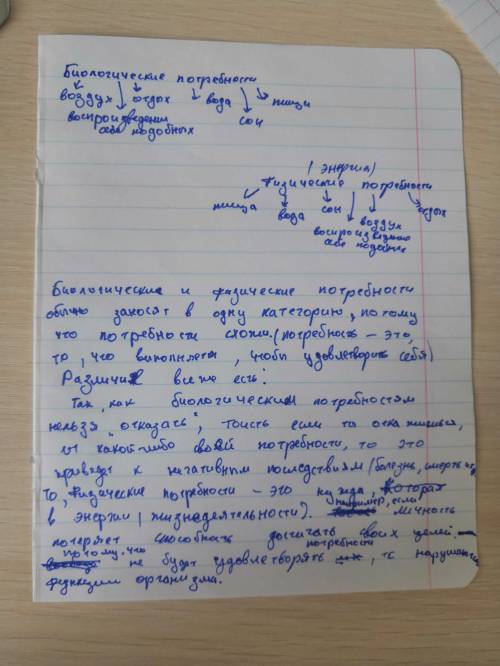 Биологические потребности
воздух отдых вода сон пищи
воспроизведении
себе подобных
(энергия)
Физические потребности
пища вода сон воздух отдых
воспроизведению
себе подобные
Биологические и физические потребности
обычно заносят в одну категорию, потому
что потребности схожи. (потребность - это,
то, что выполняется, чтобы удовлетворить себя)
Различия все же есть:
Так, как биологическим потребностям
нельзя "отказать", тоисть если ты откажешься,
от какой либо своей потребности, то это
приведет к негативным последствиям (болезнь, смерть
То, Физические потребности - это нужда, которая
в энергии (жизнедеятельности). например, если личность
потеряет способность достигать своих целей.
потому, что не будет удовлетворять потребности, то
функции организма.